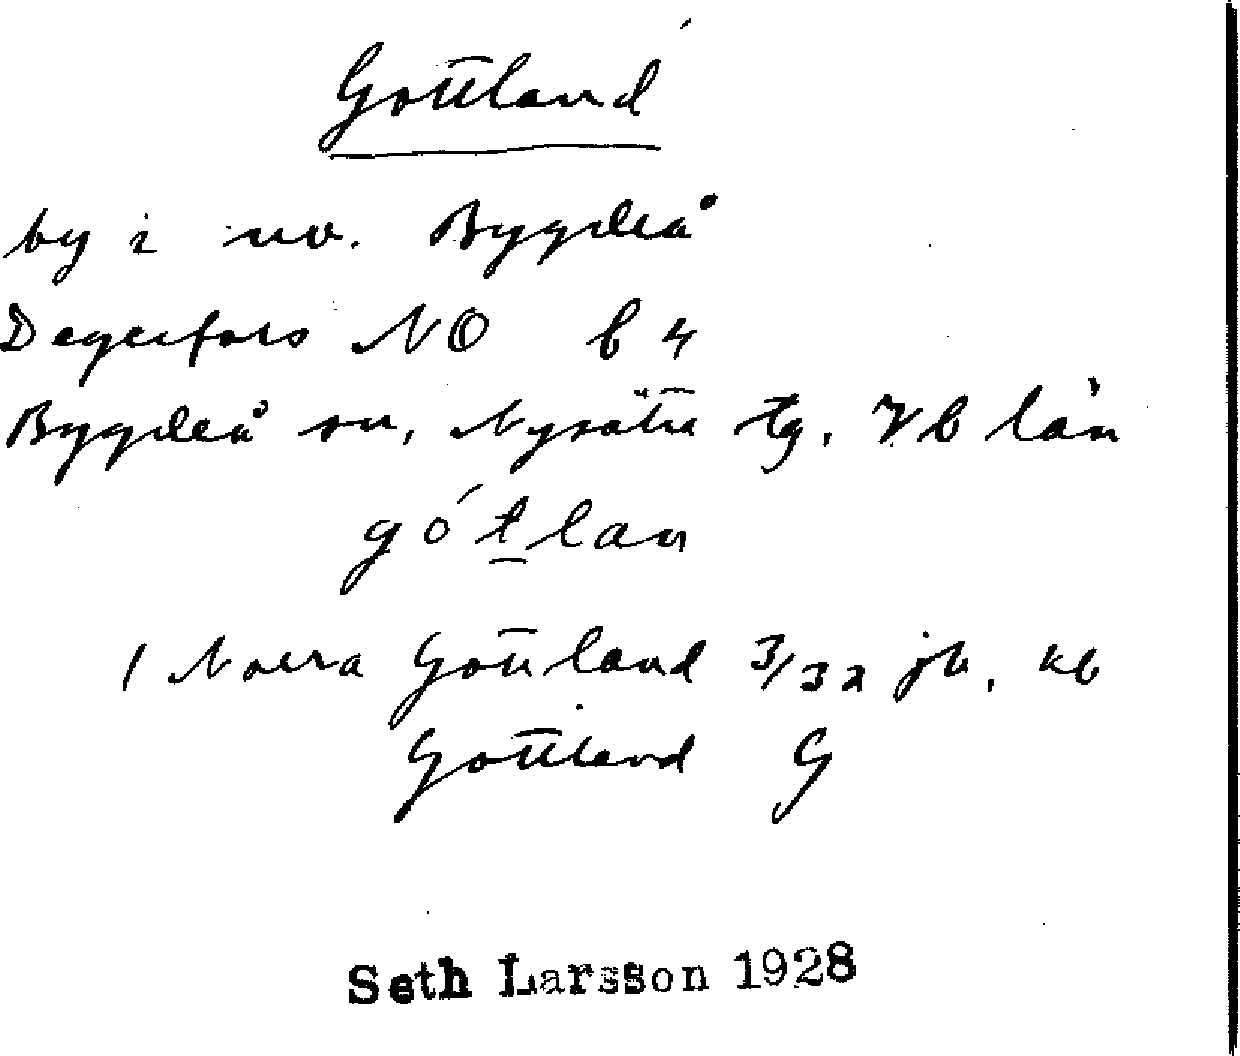 Gottland
by i nv. Bygdeå
Degerfors NO b 4
Bygdeå sn, Nysätra tg. Vb län
gó t̲ lan
1 Norra Gottland 3/32 jb, kb
Gottland G
Seth Larsson 1928